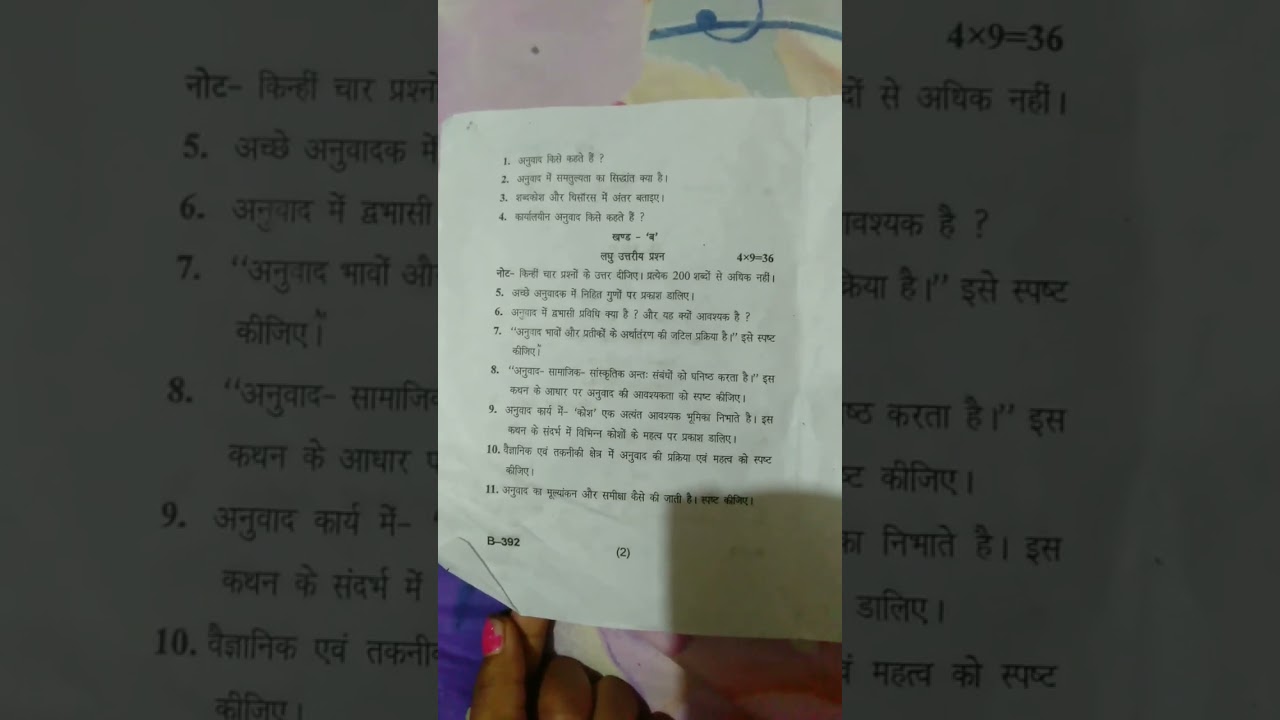 1. अनुवाद किसे कहते हैं ?
2. अनुवाद में समतुल्यता का सिद्धांत क्या है।
3. शब्दकोश और थिसॉरस में अंतर बताइए।
4. कार्यालयीन अनुवाद किसे कहते हैं ?
खण्ड - 'ब'
लघु उत्तरीय प्रश्न 4×9=36
नोट- किन्हीं चार प्रश्नों के उत्तर दीजिए। प्रत्येक 200 शब्दों से अधिक नहीं।
5. अच्छे अनुवादक में निहित गुणों पर प्रकाश डालिए।
6. अनुवाद में द्वभासी प्रविधि क्या है ? और यह क्यों आवश्यक है ?
7. "अनुवाद भावों और प्रतीकों के अर्थातंरण की जटिल प्रक्रिया है।" इसे स्पष्ट
कीजिए।
8. "अनुवाद- सामाजिक- सांस्कृतिक अन्तः संबंधों को घनिष्ठ करता है।" इस
कथन के आधार पर अनुवाद की आवश्यकता को स्पष्ट कीजिए।
9. अनुवाद कार्य में- 'कोश' एक अत्यंत आवश्यक भूमिका निभाते है। इस
कथन के संदर्भ में विभिन्न कोशों के महत्व पर प्रकाश डालिए।
10. वैज्ञानिक एवं तकनीकी क्षेत्र में अनुवाद की प्रक्रिया एवं महत्व को स्पष्ट
कीजिए।
11. अनुवाद का मूल्यांकन और समीक्षा कैसे की जाती है। स्पष्ट कीजिए।
B-392
(2)